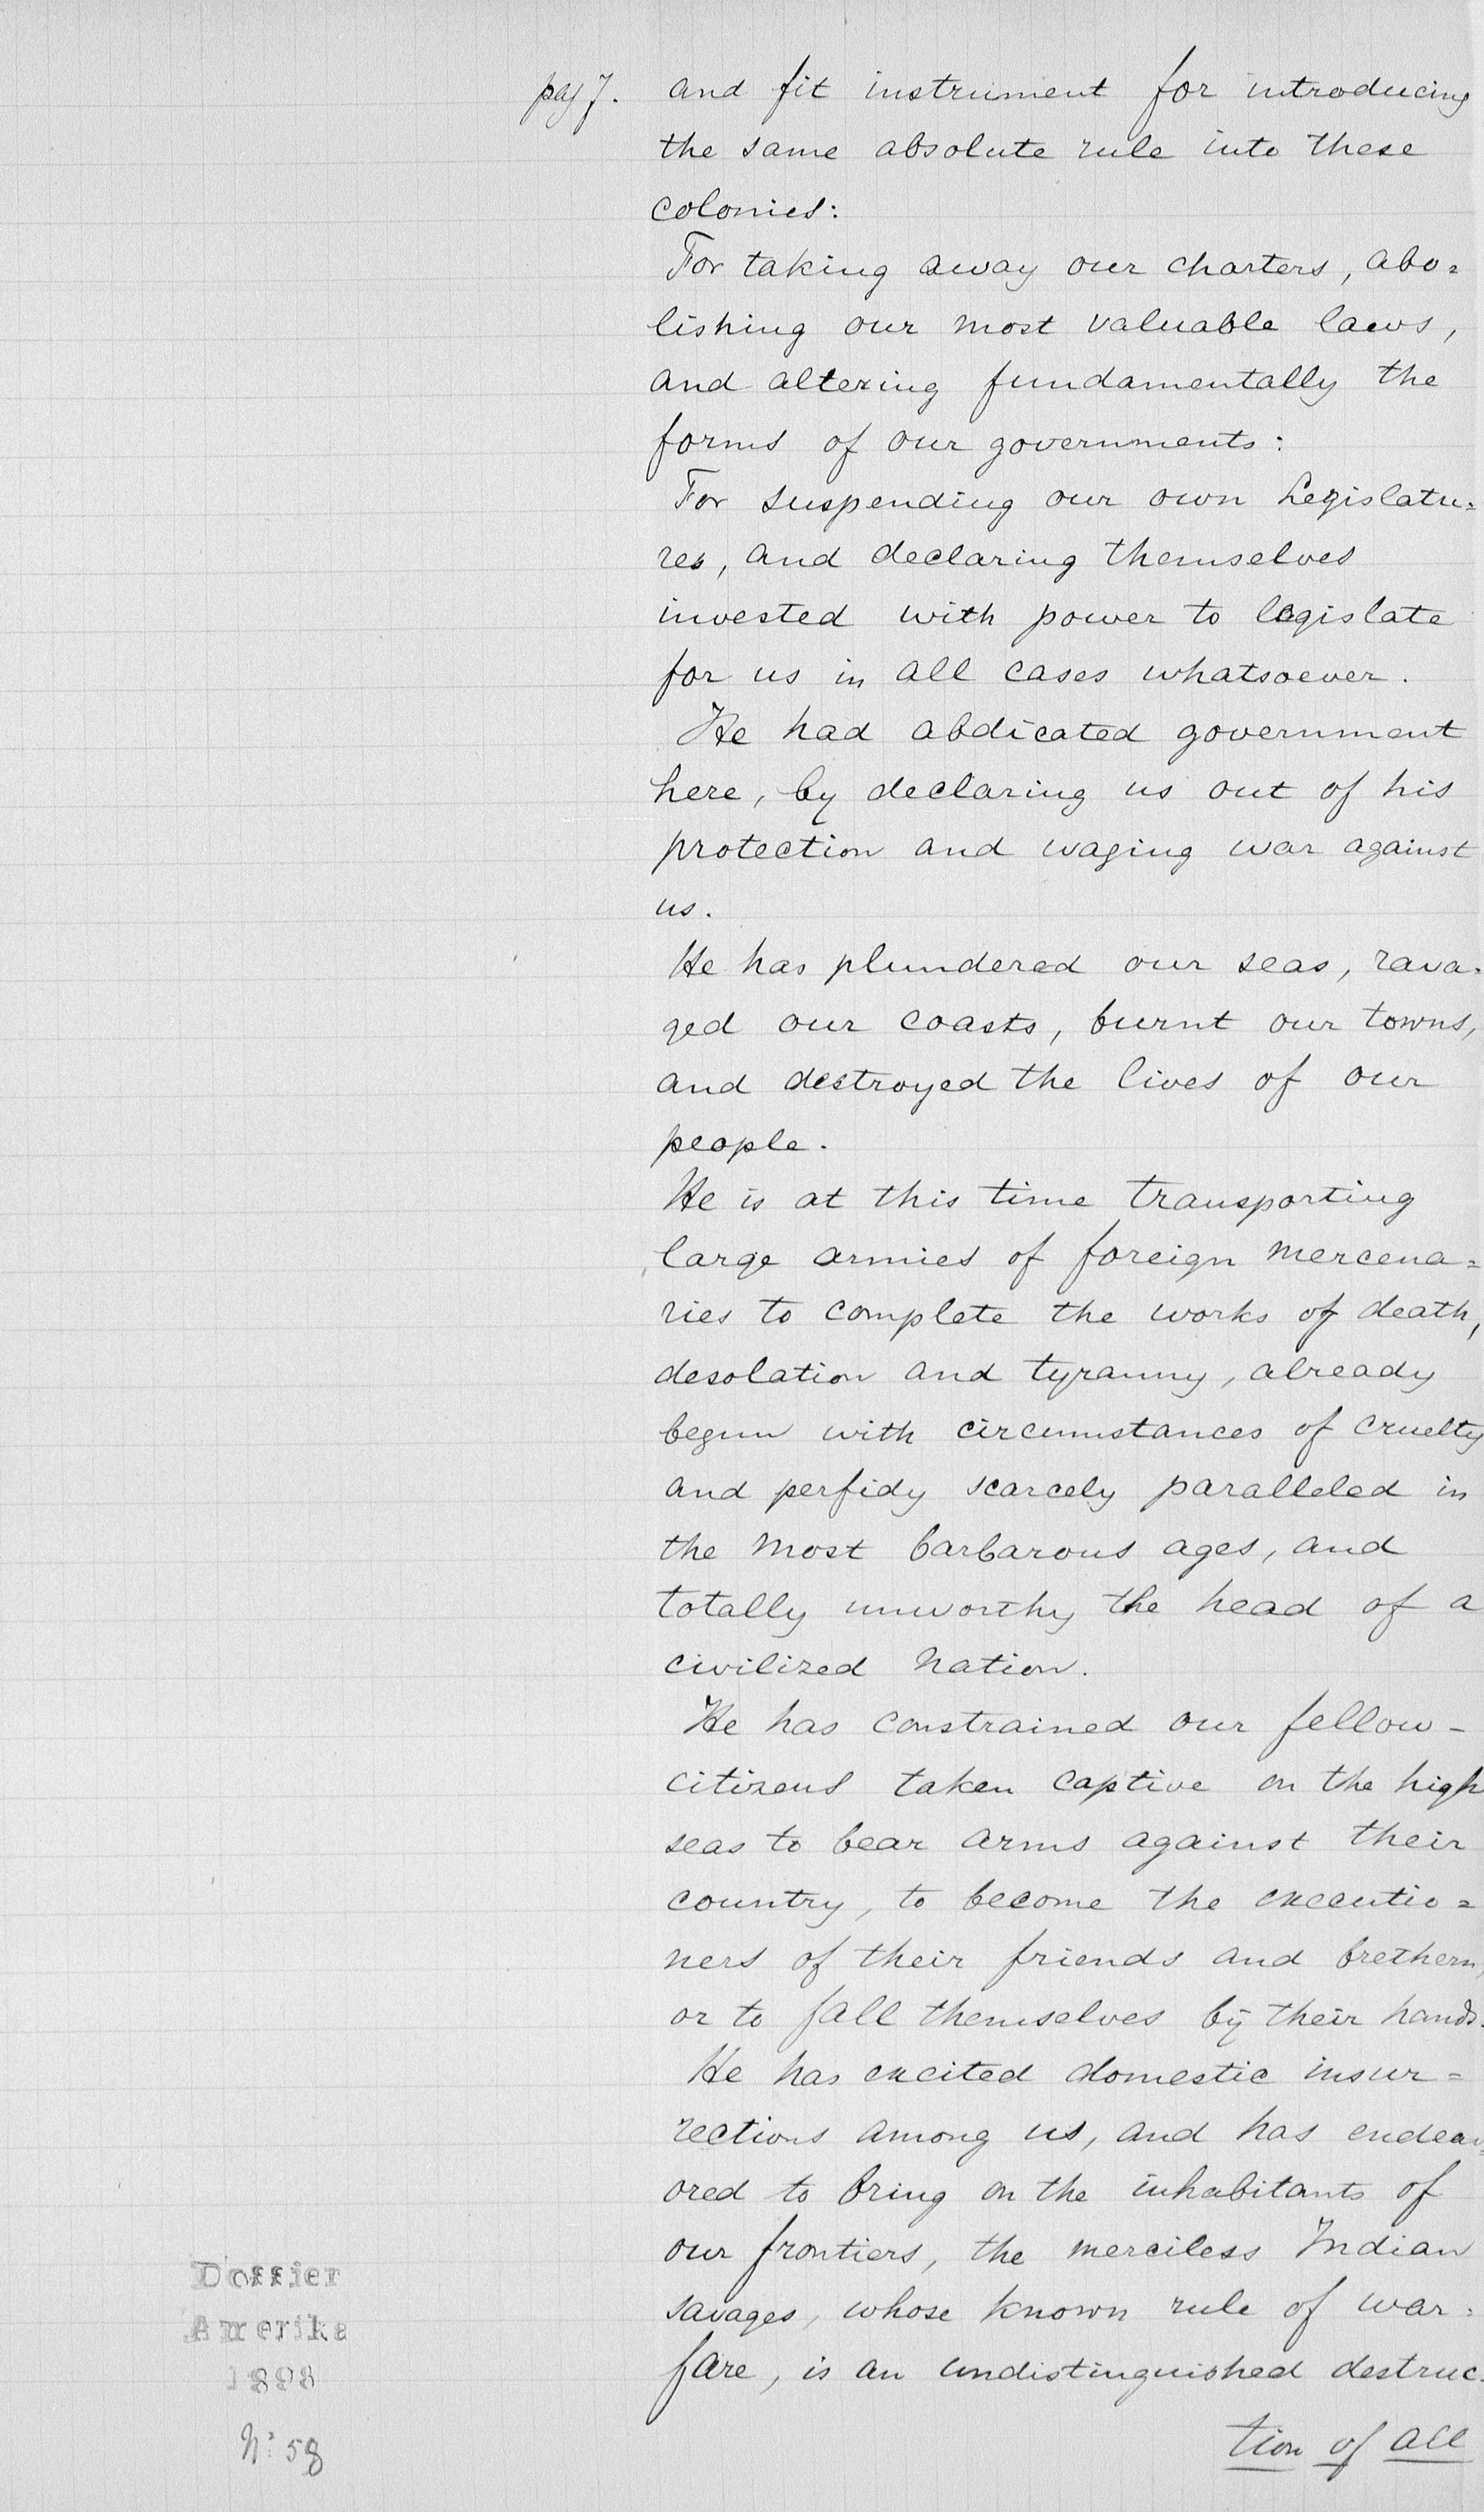 pag 7. and fit instrument for introducing
the same absolute rule into these
colonies:
For taking away our charters, abo=
lishing our most valuable laws,
and altering fundamentally the
forms of our governments:
For suspending our own Legislatu=
res, and declaring themselves
invested with power to legislate
for us in all cases whatsoever.
He had abdicated government
here, by declaring us out of his
protection and waging war against
us.
He has plundered our seas, rava=
ged our coasts, burnt our towns,
and destroyed the lives of our
people.
He is at this time transporting
large armies of foreign mercena=
ries to complete the works of death,
desolation and tyranny, already
begun with circumstances of cruelty
and perfidy scarcely paralleled in
the most barbarous ages, and
totally unworthy the head of a
civilized nation.
He has constrained our fellow-
citizens taken captive on the high
seas to bear arms against their
country, to become the executio=
ners of their friends and brethern,
or to fall themselves by their hands.
He has excited domestic insur=
rections among us, and has endeav=
ored to bring on the inhabitants of
our frontiers, the merciless Indian
savages, whose known rule of war=
fare, is an undistinguished destruc=
tion of all
Dossier
Amerika
1898
No 58